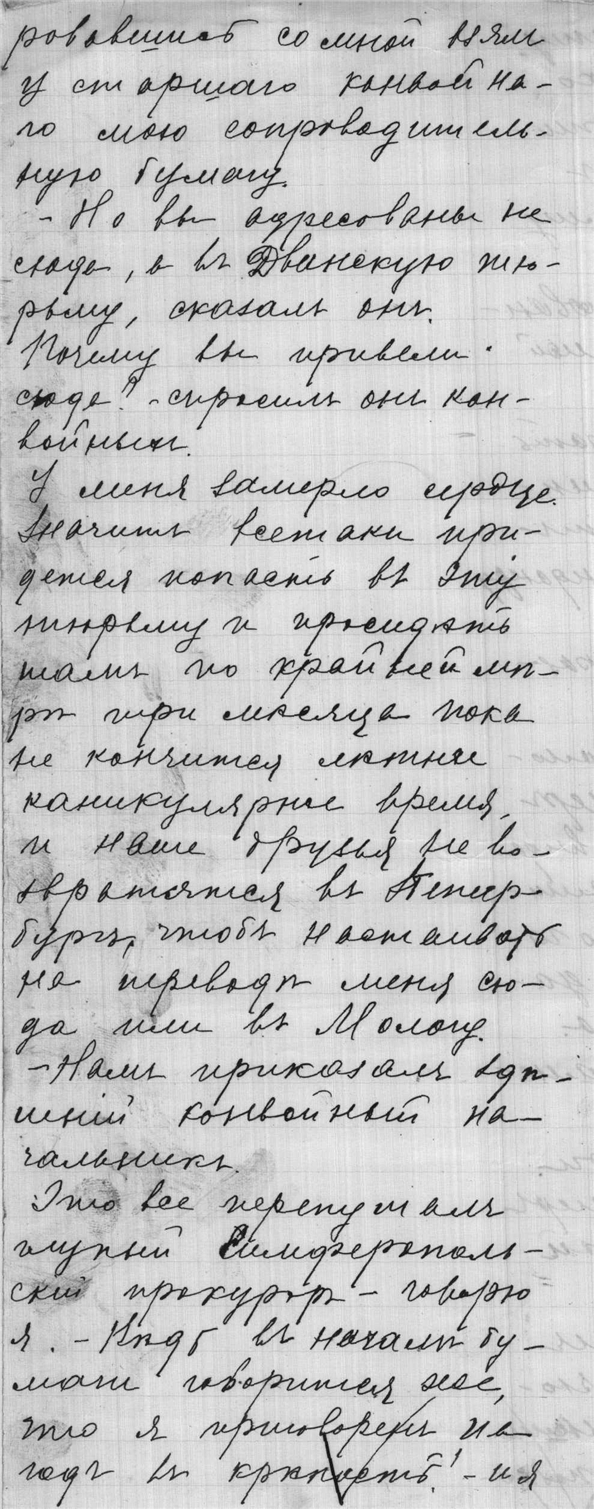 ровавшись со мной взялъ
у старшаго конвойна-
го мою сопроводитель-
ную бумагу.
- Но вы адресованы не
сюда, а въ Двинскую тю-
рьму, сказалъ онъ.
Почему вы привели
сюда? - спросилъ онъ кон-
войныхъ.
У меня замерло сердце.
Значитъ всетаки при-
дется попасть въ эту
тюрьму и просидѣть
тамъ по крайней мѣ-
рѣ три мѣсяца пока
не кончится лѣтнее
каникулярное время,
и наши друзья не во-
звратятся въ Петер-
бургъ, чтобъ настаивать
на переводѣ меня сю-
да или въ Мологу.
- Намъ приказалъ здѣ-
шній конвойный на-
чальникъ.
Это все перепуталъ
глупый Симферополь-
скій прокуроръ - говорю
я. - Вѣдь въ началѣ бу-
маги говорится же,
что я приговоренъ на
годъ въ крѣпость! - и я